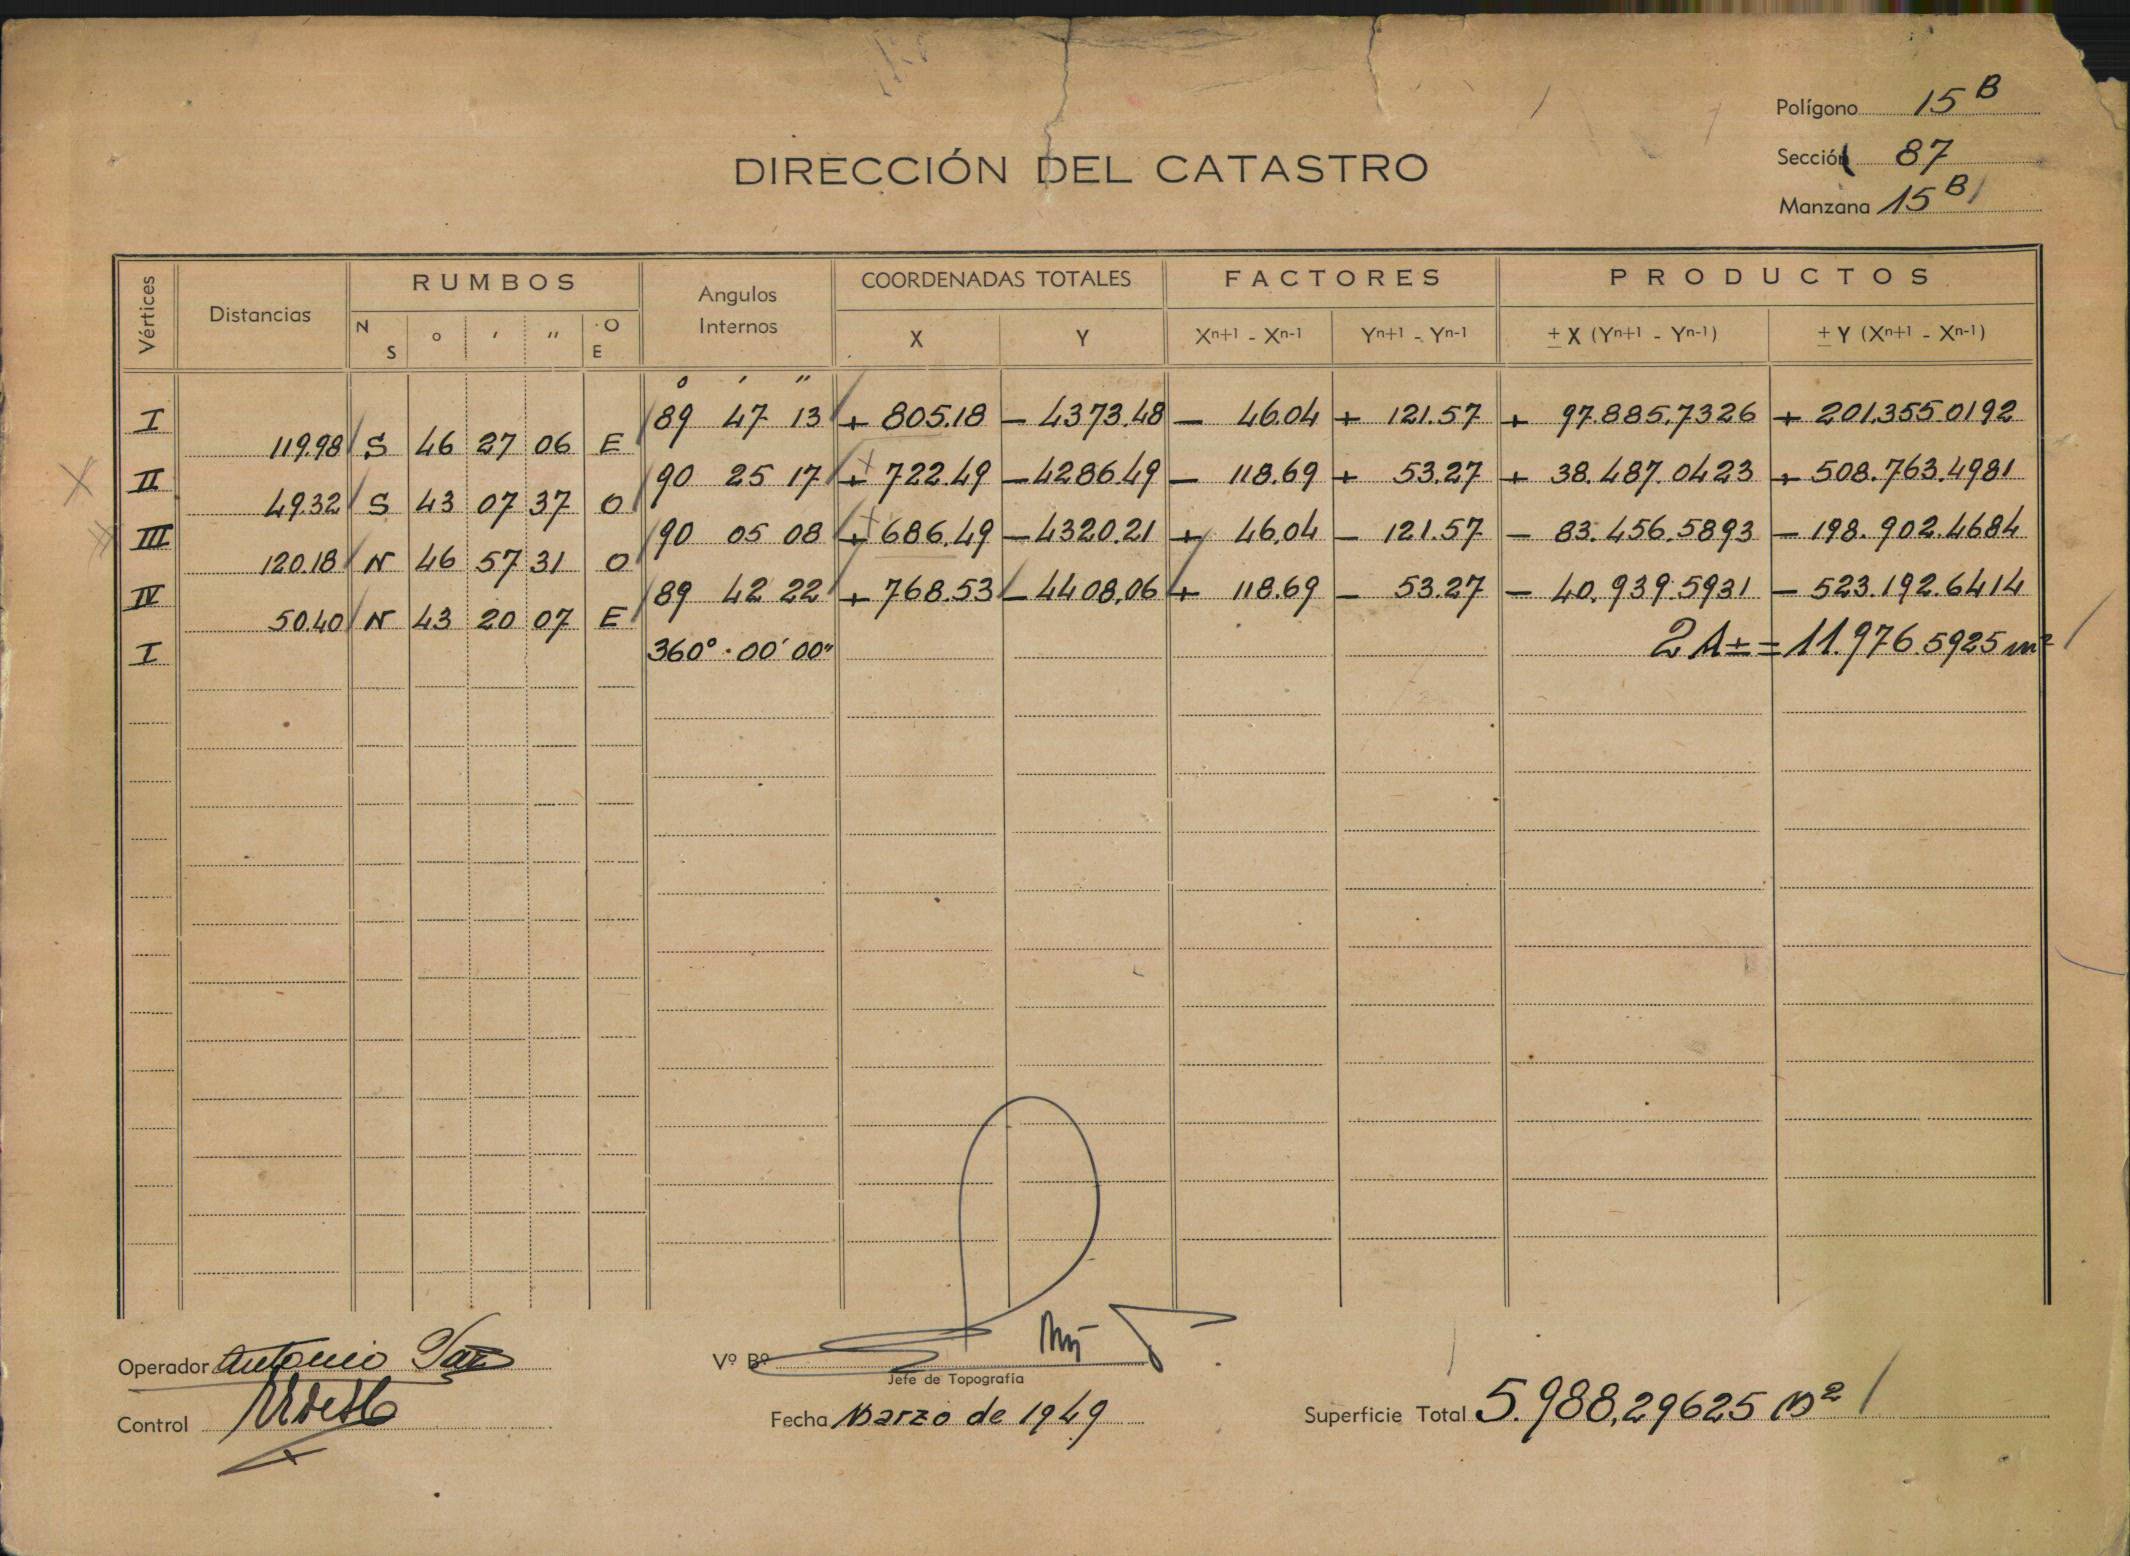 Polígono 15 B
DIRECCIÓN DEL CATASTRO
Sección 87
Manzana 15 B
Vértices Distancias RUMBOS Angulos Internos COORDENADAS TOTALES FACTORES PRODUCTOS
N S ° ' " O E X Y Xn+1 - Xn-1 Yn+1 - Yn-1 ± X (Yn+1 - Yn-1) ± Y (Xn+1 - Xn-1)
° ' "
I 89 47 13 + 805.18 - 4373.48 - 46.04 + 121.57 + 97.885.7326 + 201.355.0192
119.98 S 46 27 06 E
II 90 25 17 + 722.49 - 4286.49 - 118.69 + 53.27 + 38.487.0423 + 508.763.4981
49.32 S 43 07 37 O
III 90 05 08 + 686.49 - 4320.21 + 46.04 - 121.57 - 83.456.5893 - 198.902.4684
120.18 N 46 57 31 O
IV 89 42 22 + 768.53 - 4408.06 + 118.69 - 53.27 - 40.939.5931 - 523.192.6414
50.40 N 43 20 07 E
I 360° 00' 00" 2A ± = 11.976.5925 m²
Operador Antonio
Vº Bº
Jefe de Topografía
Control
Fecha Marzo de 1949
Superficie Total 5.988,29625 m²